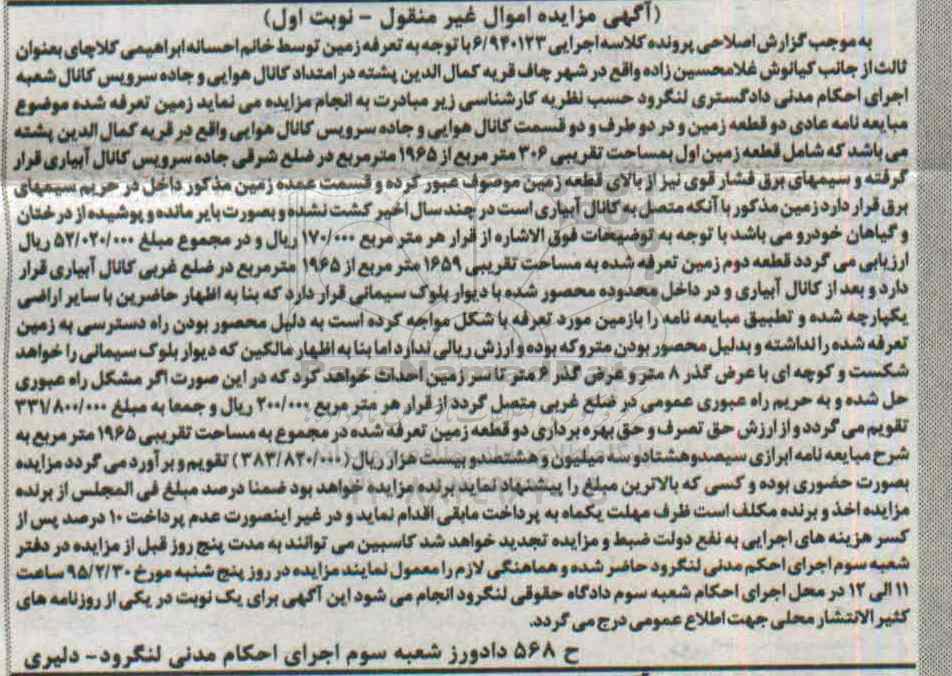 (آگهی مزایده اموال غیر منقول - نوبت اول)
به موجب گزارش اصلاحی پرونده کلاسه اجرایی ۶/۹۴۰۱۲۳ با توجه به تعرفه زمین توسط خانم احسانه ابراهیمی کلاچای بعنوان
ثالث از جانب کیانوش غلامحسین زاده واقع در شهر چاف قریه کمال الدین پشته در امتداد کانال هوایی و جاده سرویس کانال شعبه
اجرای احکام مدنی دادگستری لنگرود حسب نظریه کارشناسی زیر مبادرت به انجام مزایده می نماید زمین تعرفه شده موضوع
مبایعه نامه عادی دو قطعه زمین و در دو طرف و دو قسمت کانال هوایی و جاده سرویس کانال هوایی واقع در قریه کمال الدین پشته
می باشد که شامل قطعه زمین اول بمساحت تقریبی ۳۰۶ متر مربع از ۱۹۶۵ مترمربع در ضلع شرقی جاده سرویس کانال آبیاری قرار
گرفته و سیمهای برق فشار قوی نیز از بالای قطعه زمین موصوف عبور کرده و قسمت عمده زمین مذکور داخل در حریم سیمهای
برق قرار دارد زمین مذکور با آنکه متصل به کانال آبیاری است در چند سال اخیر کشت نشده و بصورت بایر مانده و پوشیده از درختان
و گیاهان خودرو می باشد با توجه به توضیحات فوق الاشاره از قرار هر متر مربع ۱۷۰/۰۰۰ ریال و در مجموع مبلغ ۵۲/۰۲۰/۰۰۰ ریال
ارزیابی می گردد قطعه دوم زمین تعرفه شده به مساحت تقریبی ۱۶۵۹ متر مربع از ۱۹۶۵ مترمربع در ضلع غربی کانال آبیاری قرار
دارد و بعد از کانال آبیاری و در داخل محدوده محصور شده با دیوار بلوک سیمانی قرار دارد که بنا به اظهار حاضرین با سایر اراضی
یکپارچه شده و تطبیق مبایعه نامه را بازمین مورد تعرفه با شکل مواجه کرده است به دلیل محصور بودن راه دسترسی به زمین
تعرفه شده را نداشته و بدلیل محصور بودن متروکه بوده و ارزش ریالی ندارد اما بنا به اظهار مالکین که دیوار بلوک سیمانی را خواهد
شکست و کوچه ای با عرض گذر ۸ متر و عرض گذر ۶ متر تا سر زمین احداث خواهد کرد که در این صورت اگر مشکل راه عبوری
حل شده و به حریم راه عبوری عمومی در ضلع غربی متصل گردد از قرار هر متر مربع ۲۰۰/۰۰۰ ریال و جمعا به مبلغ ۳۳۱/۸۰۰/۰۰۰
تقویم می گردد و از ارزش حق تصرف و حق بهره برداری دو قطعه زمین تعرفه شده در مجموع به مساحت تقریبی ۱۹۶۵ متر مربع به
شرح مبایعه نامه ابرازی سیصدوهشتادو سه میلیون و هشتصدو بیست هزار ریال (۳۸۳/۸۲۰/۰۰۰) تقویم و برآورد می گردد مزایده
بصورت حضوری بوده و کسی که بالاترین مبلغ را پیشنهاد نماید برنده مزایده خواهد بود ضمنا درصد مبلغ فی المجلس از برنده
مزایده اخذ و برنده مکلف است ظرف مهلت یکماه به پرداخت مابقی اقدام نماید و در غیر اینصورت عدم پرداخت ۱۰ درصد پس از
کسر هزینه های اجرایی به نفع دولت ضبط و مزایده تجدید خواهد شد کاسبین می توانند به مدت پنج روز قبل از مزایده در دفتر
شعبه سوم اجرای احکم مدنی لنگرود حاضر شده و هماهنگی لازم را معمول نمایند مزایده در روز پنج شنبه مورخ ۹۵/۲/۳۰ ساعت
۱۱ الی ۱۲ در محل اجرای احکام شعبه سوم دادگاه حقوقی لنگرود انجام می شود این آگهی برای یک نوبت در یکی از روزنامه های
کثیر الانتشار محلی جهت اطلاع عمومی درج می گردد.
ح ۵۶۸ دادورز شعبه سوم اجرای احکام مدنی لنگرود- دلیری